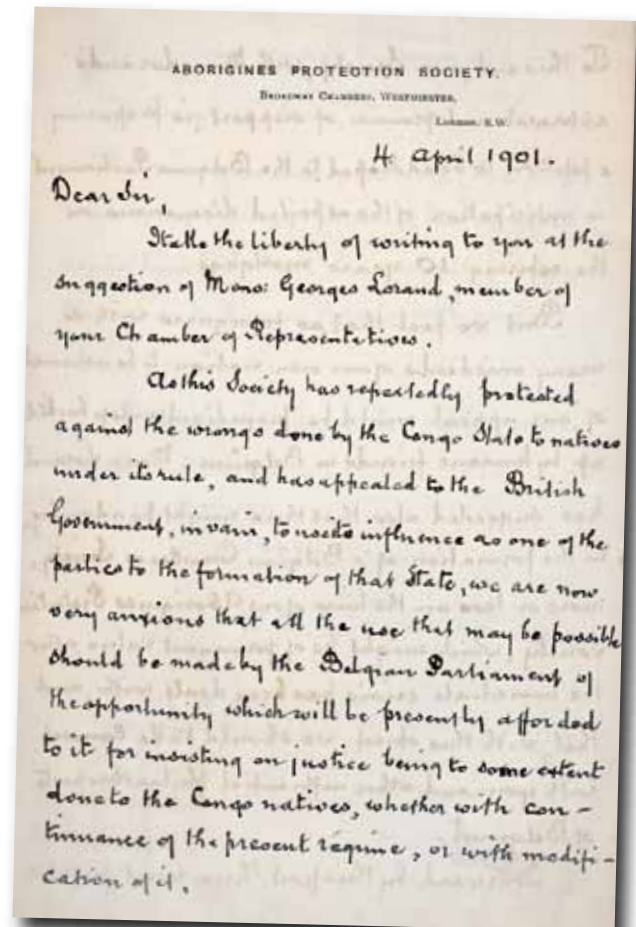 ABORIGINES PROTECTION SOCIETY.
BROADWAY CHAMBERS, WESTMINSTER,
LONDON. S.W.
4 April 1901.
Dear Sir,
I take the liberty of writing to you at the
suggestion of Mons: Georges Lorand, member of
your Chamber of Representatives.
As this Society has repeatedly protested
against the wrongs done by the Congo State to natives
under its rule, and has appealed to the British
Government, in vain, to use its influence as one of the
parties to the formation of that State, we are now
very anxious that all the use that may be possible
should be made by the Belgian Parliament of
the opportunity which will be presently afforded
to it for insisting on justice being to some extent
done to the Congo natives, whether with con-
tinuance of the present régime, or with modifi-
cation of it.